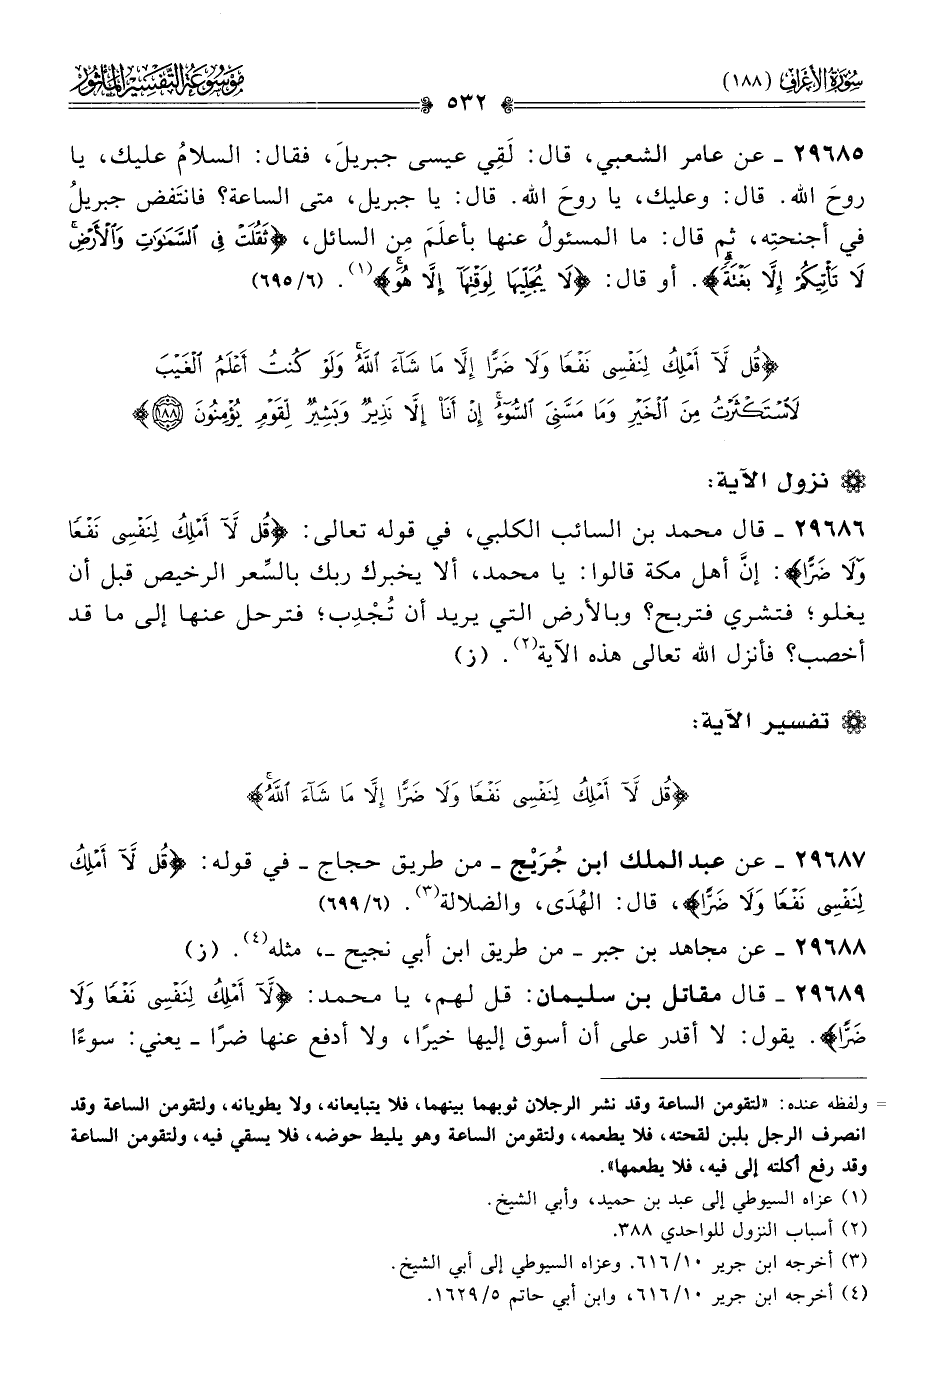 سُورَةُ الأَعْرَافِ (١٨٨)
٥٣٢
مَوْسُوعَةُ التَّفْسِيرِ الْمَأْثُورِ
٢٩٦٨٥ ـ عن عامر الشعبي، قال: لَقِي عيسى جبريلَ، فقال: السلامُ عليك، يا
روحَ الله. قال: وعليك، يا روحَ الله. قال: يا جبريل، متى الساعة؟ فانتَفض جبريلُ
في أجنحتِه، ثم قال: ما المسئولُ عنها بأعلَمَ مِن السائل، ﴿ثَقُلَتْ فِى السَّمَٰوَٰتِ وَٱلْأَرْضِۚ
لَا تَأْتِيكُمْ إِلَّا بَغْتَةًۗ﴾. أو قال: ﴿لَا يُجَلِّيهَا لِوَقْتِهَآ إِلَّا هُوَۚ﴾(١). (٦/ ٦٩٥)
﴿قُل لَّآ أَمْلِكُ لِنَفْسِى نَفْعًا وَلَا ضَرًّا إِلَّا مَا شَآءَ ٱللَّهُۚ وَلَوْ كُنتُ أَعْلَمُ ٱلْغَيْبَ
لَٱسْتَكْثَرْتُ مِنَ ٱلْخَيْرِ وَمَا مَسَّنِىَ ٱلسُّوٓءُۚ إِنْ أَنَا۠ إِلَّا نَذِيرٌ وَبَشِيرٌ لِّقَوْمٍ يُؤْمِنُونَ ١٨٨﴾
نزول الآية:
٢٩٦٨٦ ـ قال محمد بن السائب الكلبي، في قوله تعالى: ﴿قُل لَّآ أَمْلِكُ لِنَفْسِى نَفْعًا
وَلَا ضَرًّا﴾: إنَّ أهل مكة قالوا: يا محمد، ألا يخبرك ربك بالسِّعر الرخيص قبل أن
يغلو؛ فتشري فتربح؟ وبالأرض التي يريد أن تُجْدِب؛ فترحل عنها إلى ما قد
أخصب؟ فأنزل الله تعالى هذه الآية(٢). (ز)
تفسير الآية:
﴿قُل لَّآ أَمْلِكُ لِنَفْسِى نَفْعًا وَلَا ضَرًّا إِلَّا مَا شَآءَ ٱللَّهُۚ﴾
٢٩٦٨٧ ـ عن عبد الملك ابن جُرَيْج ـ من طريق حجاج ـ في قوله: ﴿قُل لَّآ أَمْلِكُ
لِنَفْسِى نَفْعًا وَلَا ضَرًّا﴾، قال: الهُدَى، والضلالة(٣). (٦/ ٦٩٩)
٢٩٦٨٨ ـ عن مجاهد بن جبر ـ من طريق ابن أبي نجيح ـ، مثله(٤). (ز)
٢٩٦٨٩ ـ قال مقاتل بن سليمان: قل لهم، يا محمد: ﴿لَّآ أَمْلِكُ لِنَفْسِى نَفْعًا وَلَا
ضَرًّا﴾. يقول: لا أقدر على أن أسوق إليها خيرًا، ولا أدفع عنها ضرًا ـ يعني: سوءًا
= ولفظه عنده: «لتقومن الساعة وقد نشر الرجلان ثوبهما بينهما، فلا يتبايعانه، ولا يطويانه، ولتقومن الساعة وقد
انصرف الرجل بلبن لقحته، فلا يطعمه، ولتقومن الساعة وهو يليط حوضه، فلا يسقي فيه، ولتقومن الساعة
وقد رفع أكلته إلى فيه، فلا يطعمها».
(١) عزاه السيوطي إلى عبد بن حميد، وأبي الشيخ.
(٢) أسباب النزول للواحدي ٣٨٨.
(٣) أخرجه ابن جرير ١٠/ ٦١٦. وعزاه السيوطي إلى أبي الشيخ.
(٤) أخرجه ابن جرير ١٠/ ٦١٦، وابن أبي حاتم ٥/ ١٦٢٩.